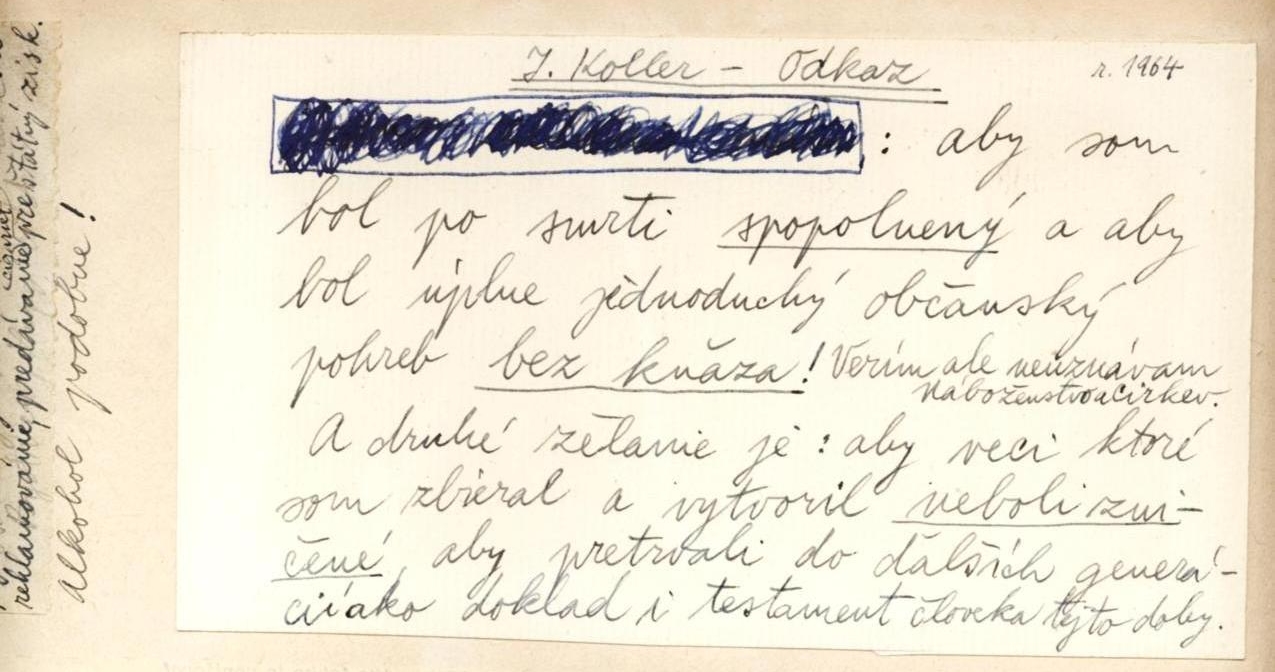 J. Koller – Odkaz
r. 1964
: aby som
bol po smrti spopolnený a aby
bol úplne jednoduchý občanský
pohreb bez kňaza! Verím ale neuznávam
náboženstvo a cirkev.
A druhé želanie je: aby veci ktoré
som zbieral a vytvoril neboli zni-
čené, aby pretrvali do ďalších generá-
cií ako doklad i testament človeka tejto doby.
reklamované, predávané pre štátny zisk.
Alkohol podobne!